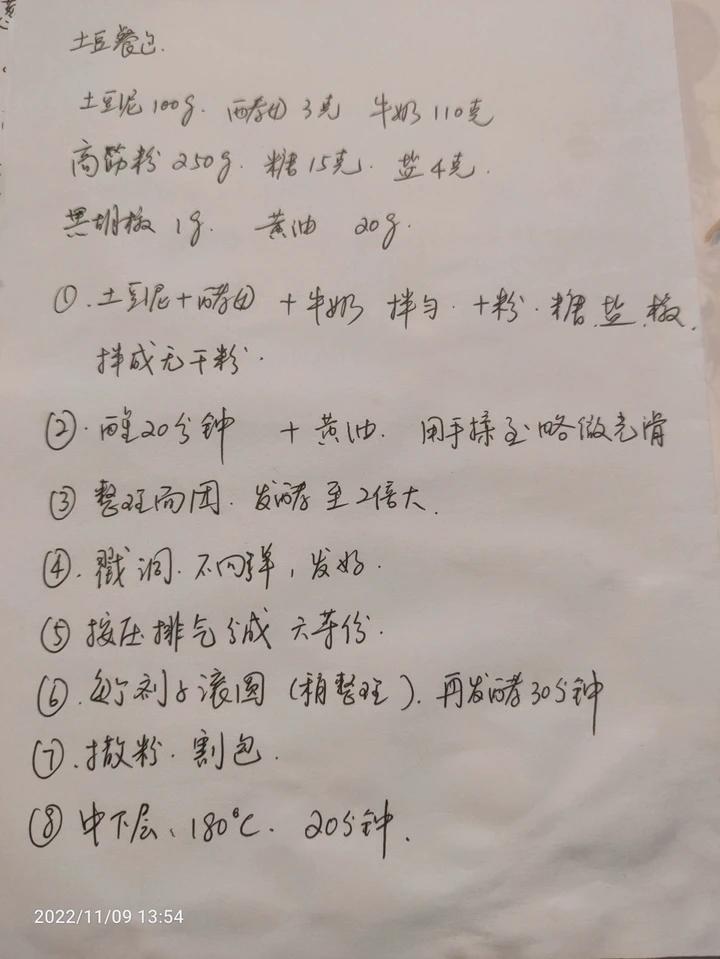 土豆餐包.
土豆泥100g. 酵母3克 牛奶110克
高筋粉250g. 糖15克. 盐4克.
黑胡椒1g. 黄油 20g.
①.土豆泥+酵母+牛奶 拌匀.+粉.糖.盐.椒.
拌成无干粉.
②.醒20分钟 +黄油. 用手揉至略微光滑
③整理面团.发酵至2倍大.
④.戳洞.不回弹,发好.
⑤按压排气分成六等份.
⑥.每个剂子滚圆(稍整理).再发酵30分钟
⑦.撒粉.割包.
⑧中下层、180℃. 20分钟.
2022/11/09 13:54